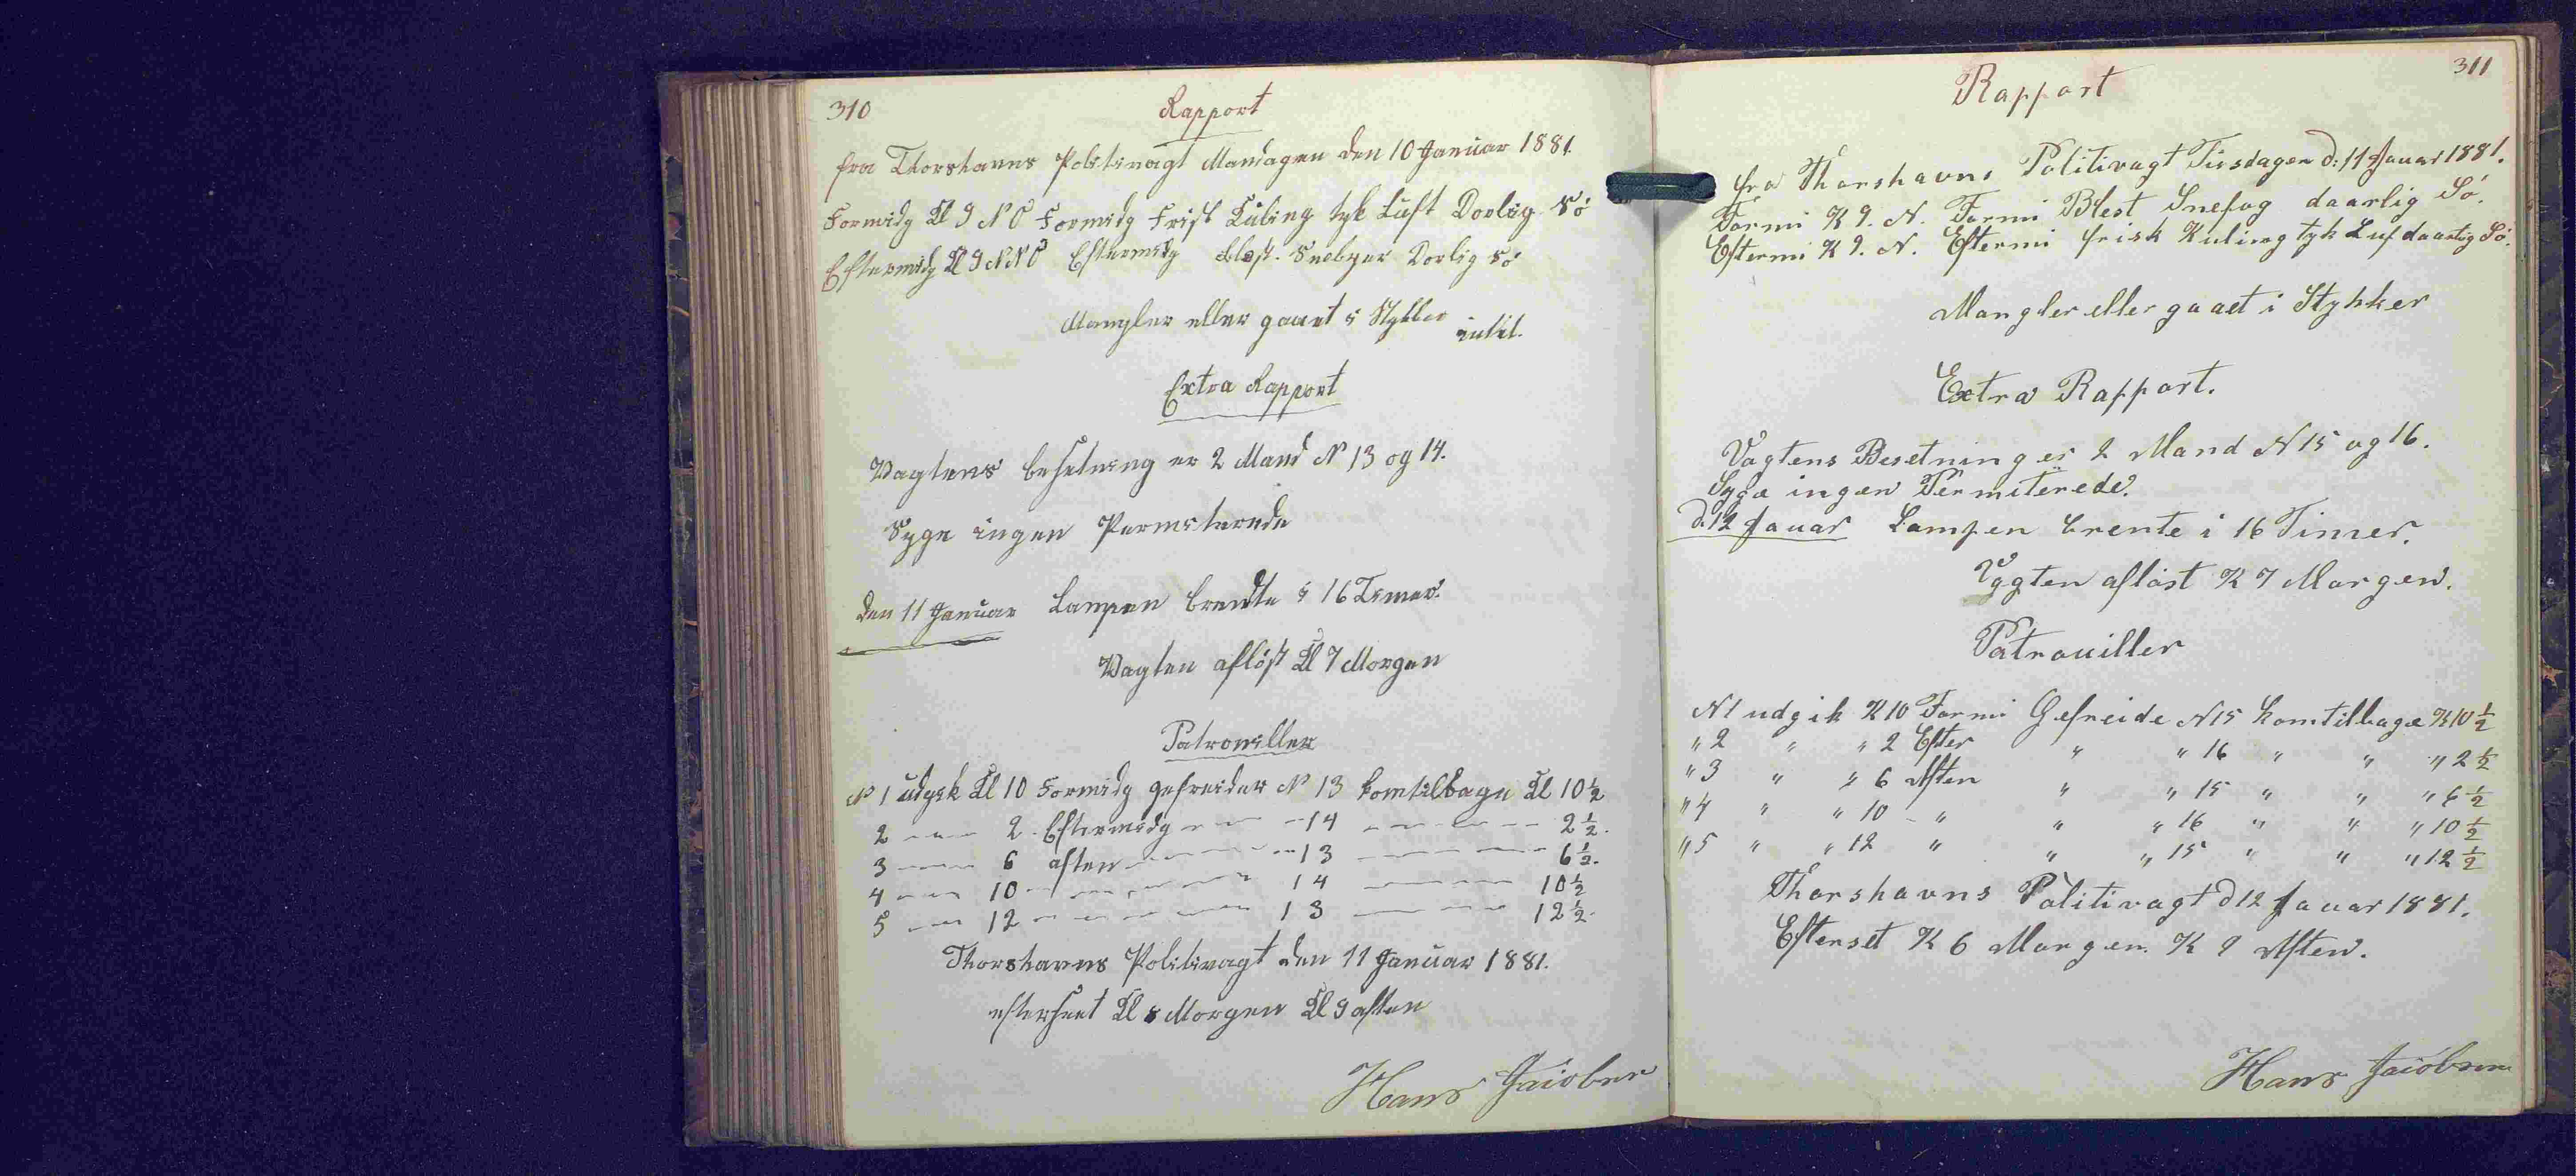 310
Rapport
fra Thorshavns Politivagt Mandagen den 10 Januar 1881.
Formidg Kl 9 N O Formidg Frisk Kuling tyk Luft Dorlig Sö
Eftermidg Kl 9 NNO Eftermidg Blæst. Snebyer Dorlig Sö
Mangler eller gaaet i Stykker intit.
Extra Rapport
Vagtens besetning er 2 Mand N 13 og 14.
Syge ingen Permiterede
den 11 Januar Lampen brendte i 16 Timer.
Vagten aflöst Kl 7 Morgen
Patroniller
N 1 udgik Kl 10 Formidg gefreider N 13 komtilbage Kl 10½
2 — — 2. Eftermidg — — 14 — — — 2½.
3 — — 6 aften — — — 13 — — — 6½.
4 — — 10 — — — — 14 — — — 10½
5 — — 12 — — — — 13 — — — 12½.
Thorshavns Politivagt den 11 Januar 1881.
efterseet Kl 8 Morgen Kl 9 aften
Hans Jacobsen
311
Rapport
fra Thorshavns Politivagt Tirsdagen d: 11 Jauar 1881.
Formi Kl 9. N. Formi Blest Snefog daarlig Sö.
Eftermi Kl 9. N. Eftermi frisk Kuling tyk Luf daarlig Sö.
Mangler eller gaaet i Stykker
Extra Rapport.
Vagtens Besetning er 2 Mand N 15 og 16.
Syge ingen Permiterede.
d. 12 Jauar Lampen brente i 16 Timer.
Vagten aflöst Kl 7 Morgen.
Patrouiller
N 1 udgik Kl 10 Formi Gefreide N 15 komtilbage Kl 10½
" 2 " " 2 Efter " " 16 " " " 2½
" 3 " " 6 Aften " " 15 " " " 6½
" 4 " " 10 " " " 16 " " " 10½
" 5 " " 12 " " " 15 " " " 12½
Thorshavns Politivagt d 12 Jauar 1881.
Efterset Kl 6 Morgen. Kl 9 Aften.
Hans Jacobsen